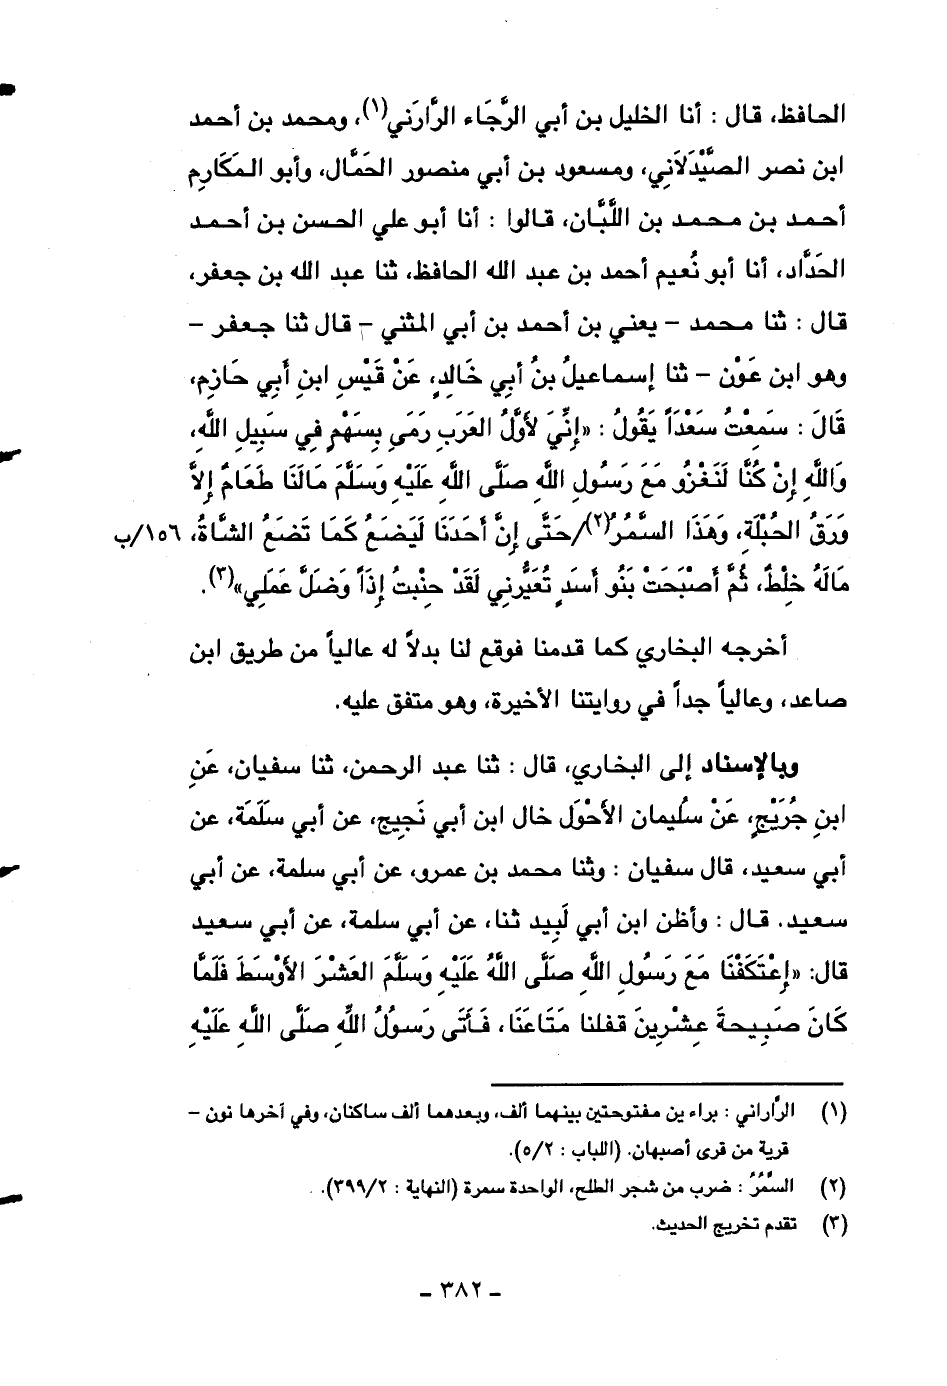 الحافظ، قال : أنا الخليل بن أبي الرَّجَاء الرَّارَني(١)، ومحمد بن أحمد
ابن نصر الصَّيْدَلَاني، ومسعود بن أبي منصور الحَمَّال، وأبو المكَارِم
أحمد بن محمد بن اللَّبَّان، قالوا : أنا أبو علي الحسن بن أحمد
الحَدَّاد، أنا أبو نُعيم أحمد بن عبد الله الحافظ، ثنا عبد الله بن جعفر،
قال : ثنا محمد – يعني بن أحمد بن أبي المثني – قال ثنا جعفر –
وهو ابن عَوْن – ثنا إسماعيلُ بنُ أبي خَالدٍ، عَنْ قَيْسِ ابنِ أَبِي حَازِم،
قَالَ : سَمِعْتُ سَعْدَاً يَقُولُ : «إنِّي لأَوَّلُ العَرَبِ رَمَى بِسَهْمٍ فِي سَبِيلِ اللَّهِ،
وَاللَّهِ إنْ كُنَّا لَنَغْزُو مَعَ رَسُولِ اللَّهِ صَلَّى اللَّهُ عَلَيْهِ وَسَلَّمَ مَالَنَا طَعَامٌ إلاَّ
وَرَقُ الحُبْلَةِ، وَهَذَا السَّمُرُ(٢)/حَتَّى إنَّ أَحَدَنَا لَيَضعُ كَمَا تَضعُ الشَّاةُ، ١٥٦/ب
مَالَهُ خلْطٌ، ثُمَّ أصْبَحَتْ بَنُو أسَدٍ تُعَيِّرُني لَقَدْ خبْتُ إذَاً وَضلَّ عَمَلي»(٣).
أخرجه البخاري كما قدمنا فوقع لنا بدلاً له عالياً من طريق ابن
صاعد، وعالياً جداً في روايتنا الأخيرة، وهو متفق عليه.
وبالإسناد إلى البخاري، قال : ثنا عبد الرحمن، ثنا سفيان، عَنِ
ابنِ جُرَيْجٍ، عَنْ سُليمان الأحْوَل خال ابن أبي نَجيح، عن أبي سلَمَة، عن
أبي سعيد، قال سفيان : وثنا محمد بن عمرو، عن أبي سلمة، عن أبي
سعيد. قال : وأظن ابن أبي لَبيد ثنا، عن أبي سلمة، عن أبي سعيد
قال: «إعْتَكَفْنَا مَعَ رَسُولِ اللَّهِ صَلَّى اللَّهُ عَلَيْهِ وَسَلَّمَ العَشْرَ الأَوْسَطَ فَلَمَّا
كَانَ صَبِيحةَ عِشْرِينَ قفلنا مَتَاعَنَا، فَأتَى رَسولُ اللَّهِ صَلَّى اللَّهُ عَلَيْهِ
(١) الرَّاراني : براءين مفتوحتين بينهما ألف، وبعدهما ألف ساكنان، وفي آخرها نون –
قرية من قرى أصبهان. (اللباب : ٥/٢).
(٢) السَّمُرُ : ضرب من شجر الطلح، الواحدة سمرة (النهاية : ٣٩٩/٢).
(٣) تقدم تخريج الحديث.
– ٣٨٢ –